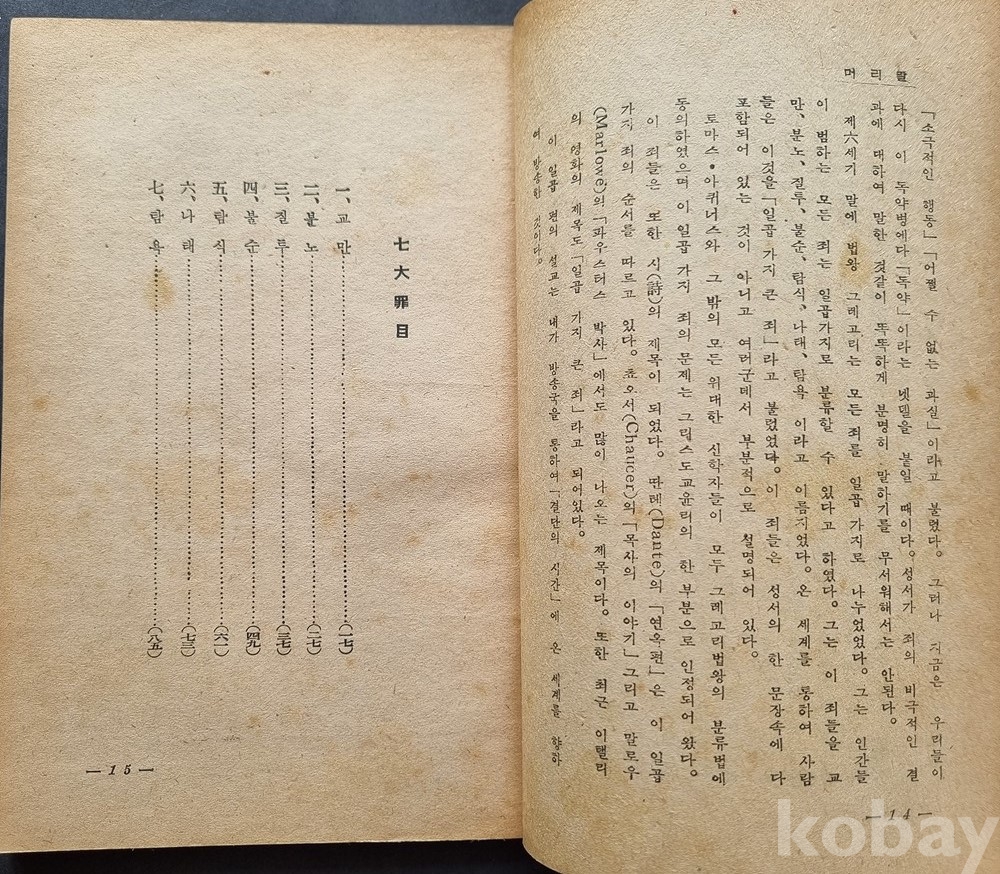 머리말
「소극적인 행동」「어쩔 수 없는 과실」이라고 불렀다. 그러나 지금은 우리들이
다시 이 독약병에다 「독약」이라는 렛델을 붙일 때이다. 성서가 죄의 비극적인 결
과에 대하여 말한 것같이 똑똑하게 분명히 말하기를 무서워해서는 안된다.
제六세기 말에 법왕 그레고리는 모든죄를 일곱 가지로 나누었었다. 그는 인간들
이 범하는 모든 죄는 일곱가지로 분류할 수 있다고 하였다. 그는 이 죄들을 교
만、분노、질투、불순、탐식、나태、탐욕 이라고 이름지었다. 온 세계를 통하여 사람
들은 이것을 「일곱 가지 큰 죄」라고 불렀었다. 이 죄들은 성서의 한 문장속에 다
포함되어 있는 것이 아니고 여러군데서 부분적으로 설명되어 있다.
토마스•아퀴너스와 그 밖의 모든 위대한 신학자들이 모두 그레고리법왕의 분류법에
동의하였으며 이 일곱 가지 죄의 문제는 그리스도교윤리의 한 부분으로 인정되어 왔다.
이 죄들은 또한 시(詩)의 제목이 되었다. 딴레(Dante)의 「연옥편」은 이 일곱
가지 죄의 순서를 따르고 있다. 쵸오서(Chaucer)의 「목사의 이야기」 그리고 말로우
(Marlowe)의 「파우스터스 박사」에서도 많이 나오는 제목이다. 또한 최근 이탤리
의 영화의 제목도 「일곱 가지 큰 죄」라고 되어있다.
이 일곱 편의 설교는 내가 방송국을 통하여 「결단의 시간」에 온 세계를 향하
여 방송한 것이다.
—14—
七大罪目
一、교만……(一七)
二、분노……(二七)
三、질투……(三七)
四、불순……(四九)
五、탐식……(六一)
六、나태……(七三)
七、탐욕……(八五)
—15—
kobay